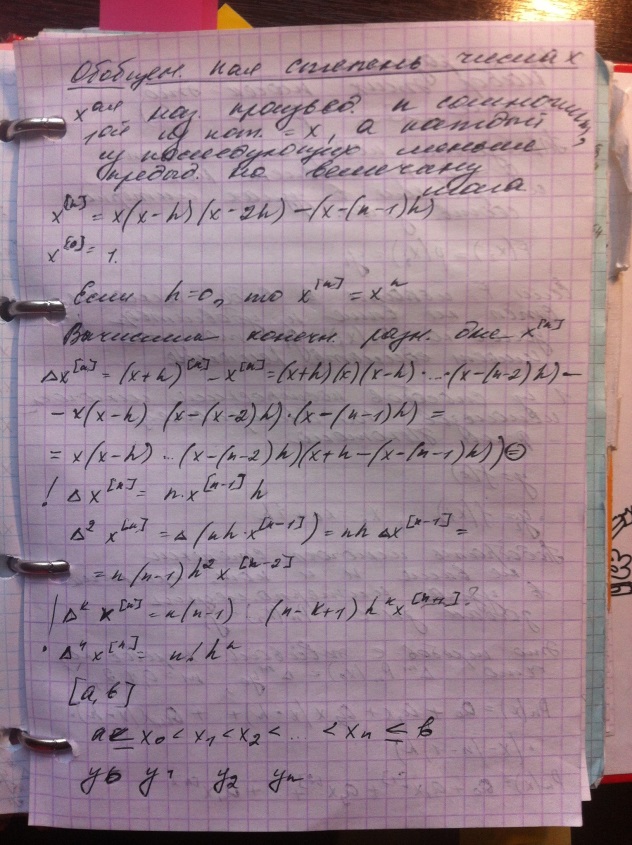 Обобщен. ная степень числа x
x ая наз. произвед. n сомножит,
ый из кот. = x, а каждый
из последующих меньше
предыд. на величину
шага
x^[n] = x(x-h)(x-2h) – (x-(n-1)h)
x^[0] = 1.
Если h=0, то x^[n] = x^n
Вычислим конечн. разн. для x^[n]
Δx^[n] = (x+h)^[n] - x^[n] = (x+h)(x)(x-h)·...·(x-(n-2)h) –
- x(x-h) (x-(x-2)h)·(x-(n-1)h) =
= x(x-h) ... (x-(n-2)h)(x+h-(x-(n-1)h)) =
! Δx^[n] = n·x^[n-1] h
Δ² x^[n] = Δ(nh·x^[n-1]) = nh Δx^[n-1] =
= n(n-1)h² x^[n-2]
! Δ^k x^[n] = n(n-1) (n-k+1) h^k ?
Δ^n x^[n] = n! h^n
[a, b]
a ≤ x₀ < x₁ < x₂ < ... < xₙ ≤ b
y₀ y₁ y₂ yₙ